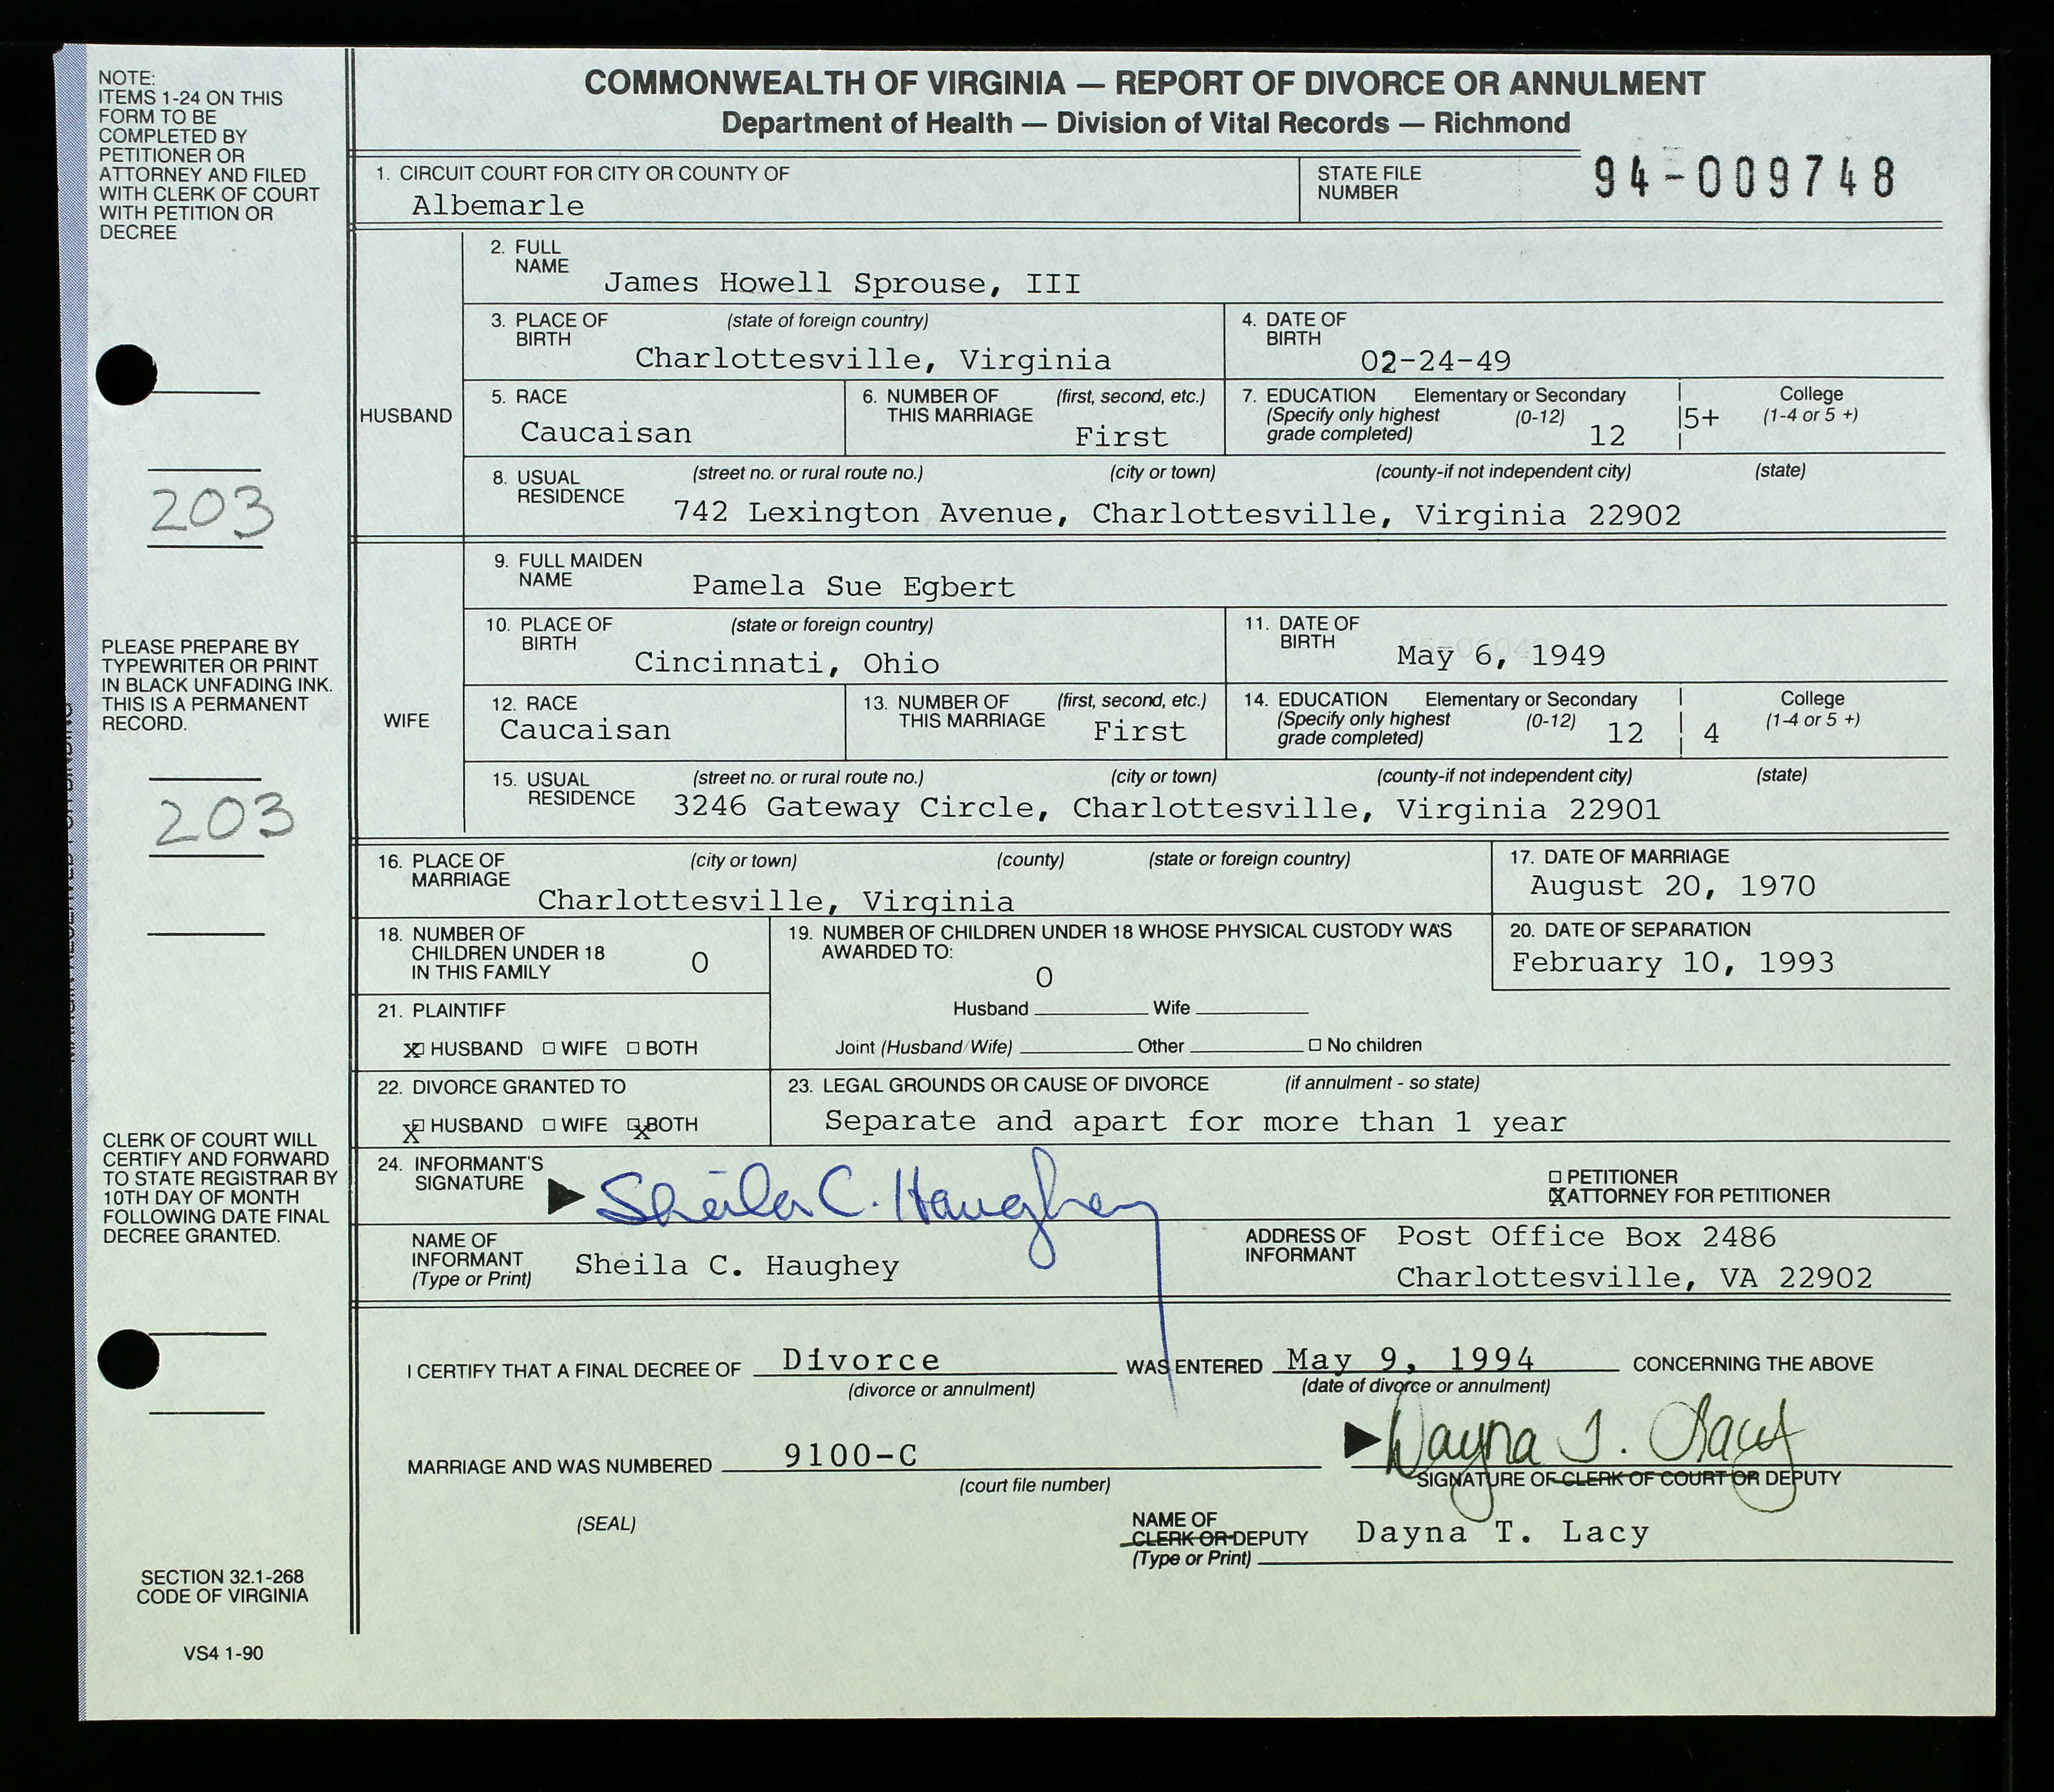 NOTE:
ITEMS 1-24 ON THIS
FORM TO BE
COMPLETED BY
PETITIONER OR
ATTORNEY AND FILED
WITH CLERK OF COURT
WITH PETITION OR
DECREE
203
PLEASE PREPARE BY
TYPEWRITER OR PRINT
IN BLACK UNFADING INK.
THIS IS A PERMANENT
RECORD.
203
CLERK OF COURT WILL
CERTIFY AND FORWARD
TO STATE REGISTRAR BY
10TH DAY OF MONTH
FOLLOWING DATE FINAL
DECREE GRANTED.
SECTION 32.1-268
CODE OF VIRGINIA
VS4 1-90
COMMONWEALTH OF VIRGINIA — REPORT OF DIVORCE OR ANNULMENT
Department of Health — Division of Vital Records — Richmond
1. CIRCUIT COURT FOR CITY OR COUNTY OF
Albemarle
STATE FILE
NUMBER
94-009748
HUSBAND
2. FULL
NAME
James Howell Sprouse, III
3. PLACE OF (state of foreign country)
BIRTH
Charlottesville, Virginia
4. DATE OF
BIRTH
02-24-49
5. RACE
Caucaisan
6. NUMBER OF (first, second, etc.)
THIS MARRIAGE
First
7. EDUCATION Elementary or Secondary College
(Specify only highest (0-12) 5+ (1-4 or 5 +)
grade completed) 12
8. USUAL (street no. or rural route no.) (city or town) (county-if not independent city) (state)
RESIDENCE
742 Lexington Avenue, Charlottesville, Virginia 22902
WIFE
9. FULL MAIDEN
NAME
Pamela Sue Egbert
10. PLACE OF (state or foreign country)
BIRTH
Cincinnati, Ohio
11. DATE OF
BIRTH
May 6, 1949
12. RACE
Caucaisan
13. NUMBER OF (first, second, etc.)
THIS MARRIAGE
First
14. EDUCATION Elementary or Secondary College
(Specify only highest (0-12) 12 4 (1-4 or 5 +)
grade completed)
15. USUAL (street no. or rural route no.) (city or town) (county-if not independent city) (state)
RESIDENCE
3246 Gateway Circle, Charlottesville, Virginia 22901
16. PLACE OF (city or town) (county) (state or foreign country)
MARRIAGE
Charlottesville, Virginia
17. DATE OF MARRIAGE
August 20, 1970
18. NUMBER OF
CHILDREN UNDER 18
IN THIS FAMILY 0
19. NUMBER OF CHILDREN UNDER 18 WHOSE PHYSICAL CUSTODY WAS
AWARDED TO:
0
Husband Wife
Joint (Husband/Wife) Other ☐ No children
20. DATE OF SEPARATION
February 10, 1993
21. PLAINTIFF
☒ HUSBAND ☐ WIFE ☐ BOTH
22. DIVORCE GRANTED TO
☒ HUSBAND ☐ WIFE ☒ BOTH
23. LEGAL GROUNDS OR CAUSE OF DIVORCE (if annulment - so state)
Separate and apart for more than 1 year
24. INFORMANT'S
SIGNATURE
Sheila C. Haughey
☐ PETITIONER
☒ ATTORNEY FOR PETITIONER
NAME OF
INFORMANT
(Type or Print)
Sheila C. Haughey
ADDRESS OF
INFORMANT
Post Office Box 2486
Charlottesville, VA 22902
I CERTIFY THAT A FINAL DECREE OF Divorce WAS ENTERED May 9, 1994 CONCERNING THE ABOVE
(divorce or annulment) (date of divorce or annulment)
MARRIAGE AND WAS NUMBERED 9100-C
(court file number)
Dayna T. Lacy
SIGNATURE OF CLERK OF COURT OR DEPUTY
(SEAL)
NAME OF
CLERK OR DEPUTY
(Type or Print)
Dayna T. Lacy